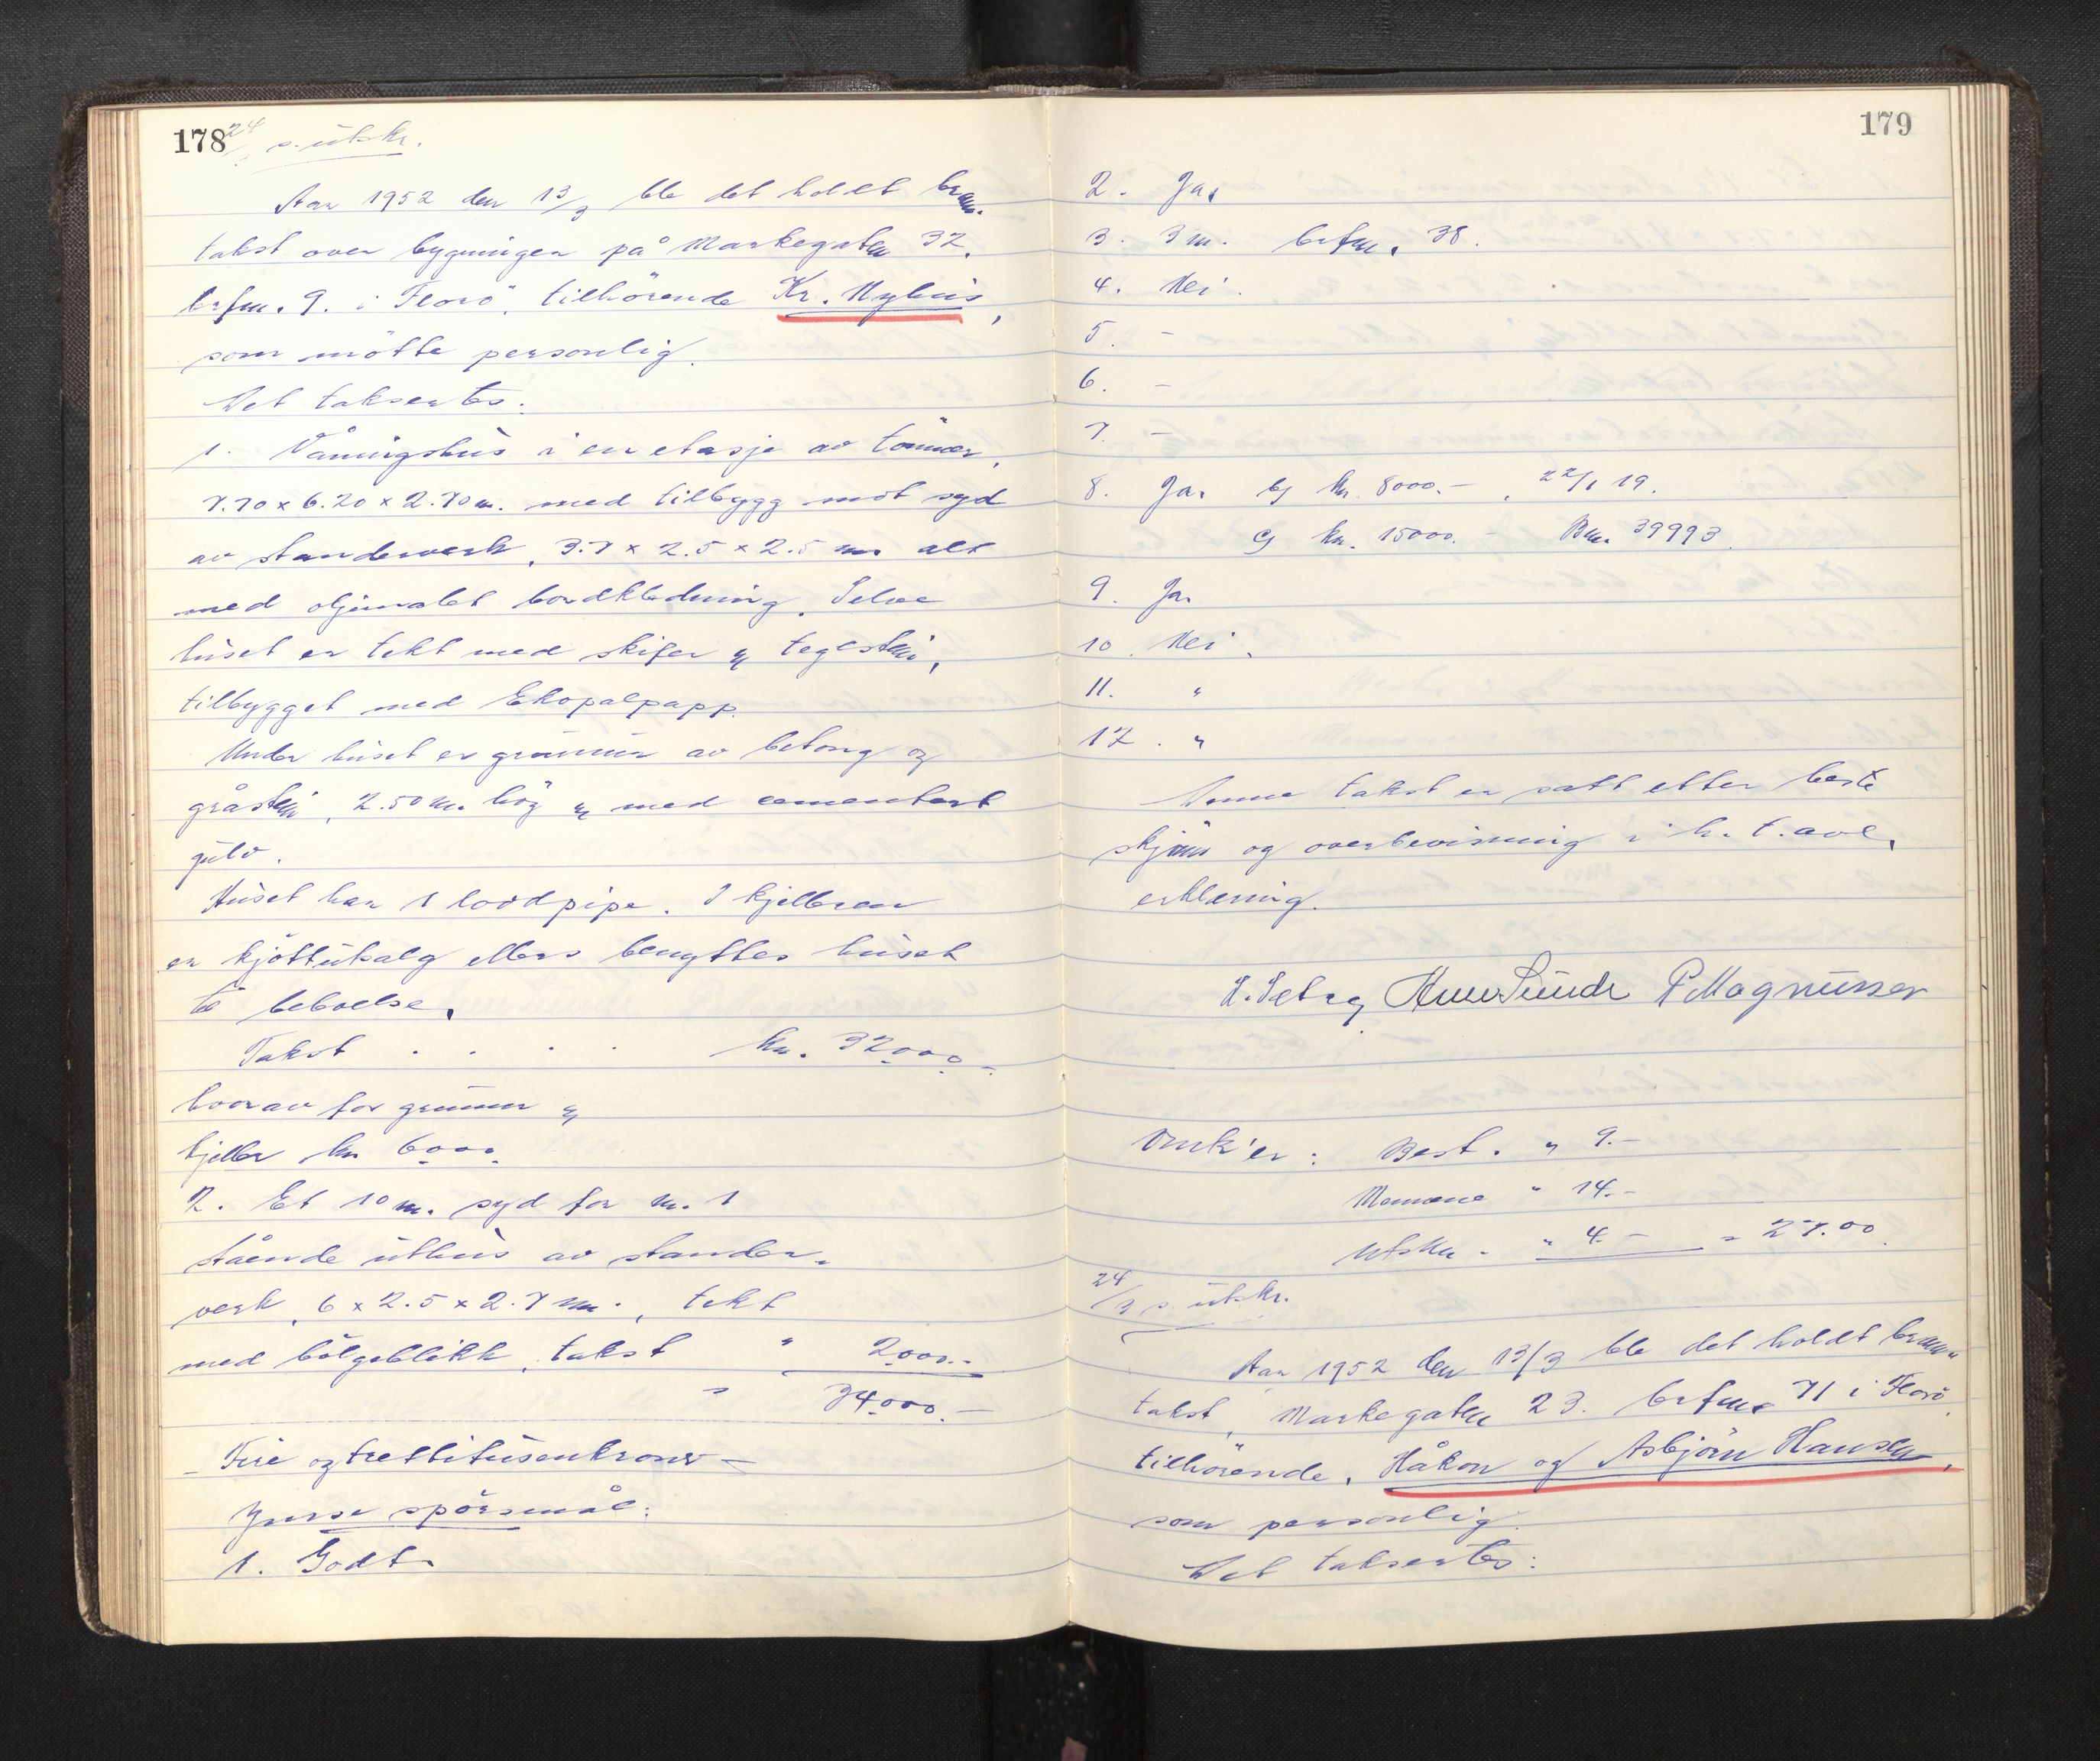 178 24/3 s. utskr.
Aar 1952 den 13/3 ble det holdt brann-
takst over bygningen på Markegaten 32.
brfnr. 9. i Florö, tilhörende Kr. Nybus,
som mötte personlig.
Det taksertes:
1. Våningshus i en etasje av tömmer,
7.70 x 6.20 x 2.70 m. med tilbygg mot syd
av standerverk, 3.7 x 2.5 x 2.5 m alt
med oljemalet bordkledning. Selve
huset er tekt med skifer og teglstein,
tilbygget med Ekopalpapp.
Under huset er grunnmur av betong og
gråstein, 2.50 m. hög og med cementert
gulv.
Huset har 1 loddpipe. I kjelleren
er kjöttutsalg ellers benyttes huset
til beboelse.
Takst . . . . kr. 32000.-
hvorav for grunnmur og
kjeller kr 6000.
2. Et 10 m. syd for nr. 1
stående uthus av stander-
verk, 6 x 2.5 x 2.7 m., tekt
med bölgeblikk, takst " 2000.-
= 34000.-
- Fire og trettitusenkroner -
Jnnse spörsmål:
1. Godt.
179
2. Ja.
3. 3 m. brfnr. 38.
4. Nei.
5. -
6. -
7. -
8. Ja. bg kr. 8000.-, 22/1 19.
g kr. 15000.- Bnr. 39993.
9. Ja.
10. Nei.
11. "
12. "
Denne takst er satt etter beste
skjönn og overbevisning i h. t. avl.
erklæring.
Hans Sunde P Magnussen
Omk'er: Best. " 9.-
Mennene " 14.-
Utskr. " 4.- = 27.00
24/3 s. utskr.
Aar 1952 den 13/3 ble det holdt brann
takst, Markegaten 23. brfnr. 71 i Florö,
tilhörende, Håkon og Asbjörn Hansen,
som personlig.
Det taksertes: